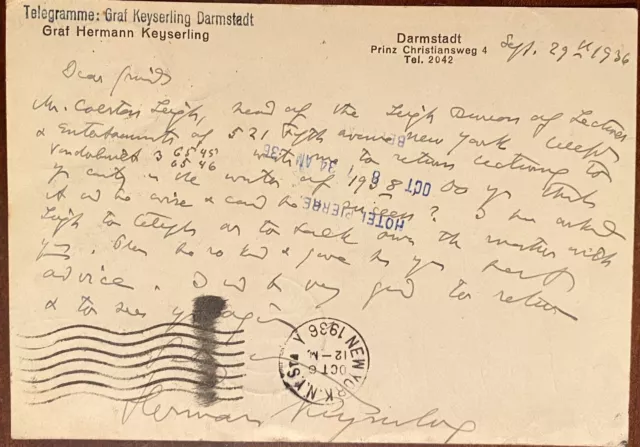 Telegramme: Graf Keyserling Darmstadt
Graf Hermann Keyserling
Darmstadt
Prinz Christiansweg 4
Tel. 2042
Sept. 29 1936
Dear friend
Mr. Colston Leigh, head of the Leigh Bureau of Lectures
& Entertainments of 521 Fifth avenue New York
Vanderbilt 3 6545
6546
to return lecturing to
in the winter of 1938? Do you think
it wd be wise & could be success? I have asked
Leigh to to talk over the matter with
you. Please be so kind & give me your best
advice. I wd be very glad to return
& to see you again
Hermann Keyserling
HOTEL PIERRE
OCT 8 AM '36
NEW YORK, N.Y.
OCT 6
12-M
1936